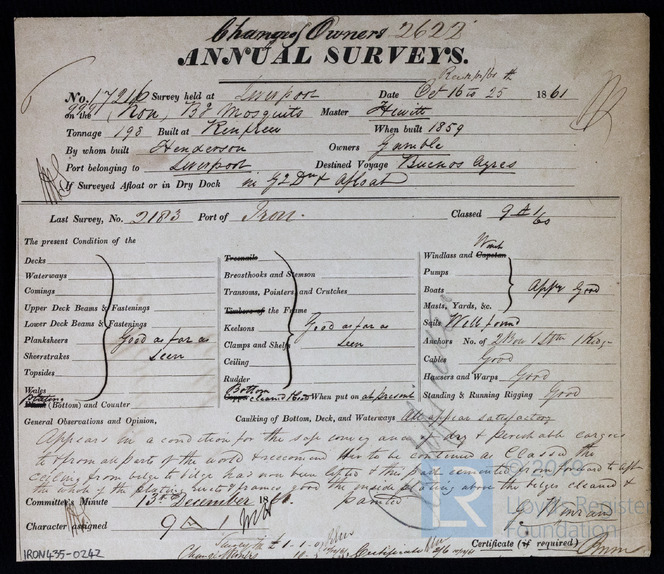 Change of Owners 2622
ANNUAL SURVEYS.
No. 17216 Survey held at Liverpool Date Oct 16 to 25 1861
on the Iron Bg Mosquito Master Hewitt
Tonnage 198 Built at Renfrew When built 1859
By whom built Henderson Owners Gamble
Port belonging to Liverpool Destined Voyage Buenos Ayres
If Surveyed Afloat or in Dry Dock in G Dk & Afloat
Last Survey, No. 2183 Port of Iron. Classed 9 A 1/60
The present Condition of the
Decks
Waterways
Comings
Upper Deck Beams & Fastenings
Lower Deck Beams & Fastenings
Planksheers Good as far as
Sheerstrakes Seen
Topsides
Wales
Plating (Bottom) and Counter
Treenails
Breasthooks and Stemson
Transoms, Pointers, and Crutches
Timbers of the Frame
Keelsons Good as far as
Clamps and Shelfs Seen
Ceiling
Rudder
Bottom cleaned When put on at present
Windlass and Capstan
Pumps
Boats Appr Good
Masts, Yards, &c.
Sails Well found
Anchors No. of 2 Bow 1 Stm 1 Kedge
Cables Good
Hausers and Warps Good
Standing & Running Rigging Good
General Observations and Opinion, Caulking of Bottom, Deck, and Waterways All appear satisfactory
Appears in a condition for the safe conveyance of dry & perishable cargoes
to & from all parts of the world & recommend her to be continued as Classed the
ceiling from bilge to bilge has been lifted & the cemented from forward to aft
the whole of the plating & frames good the outside plating above the bilges cleaned &
painted
Committee's Minute 13th December 186
Character assigned 9 A 1
Certificate (if required)
IRON435-0242
© 2022
LR
Lloyd's Register
Foundation